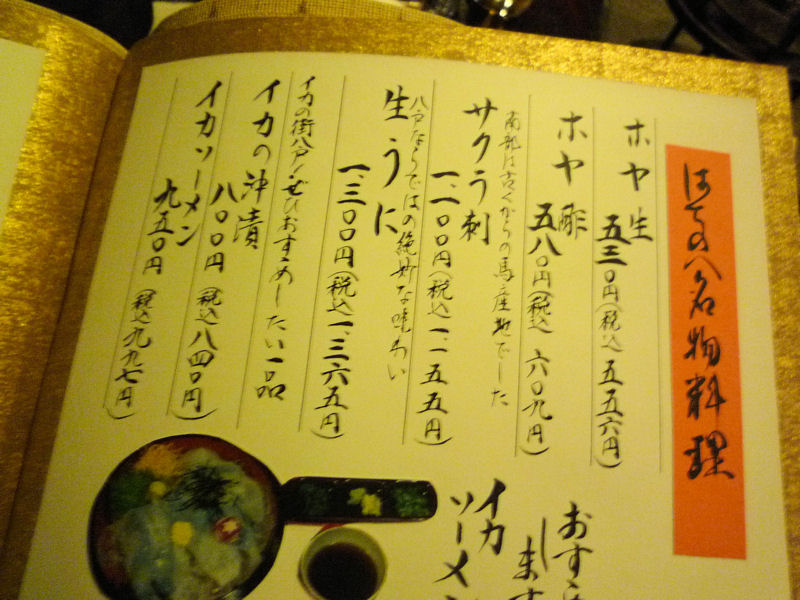 はちのへ名物料理
ホヤ生
五三〇円(税込 五五六円)
ホヤ酢
五八〇円(税込 六〇九円)
南部は古くからの馬産地でした
サクラ刺
一、一〇〇円(税込 一、一五五円)
八戸ならではの絶妙な味わい
生うに
一、三〇〇円(税込 一、三六五円)
イカの街八戸!ぜひおすすめしたい一品
イカの沖漬
八〇〇円(税込 八四〇円)
イカソーメン
九五〇円(税込 九九七円)
おすす
します
イカ
ソーメン